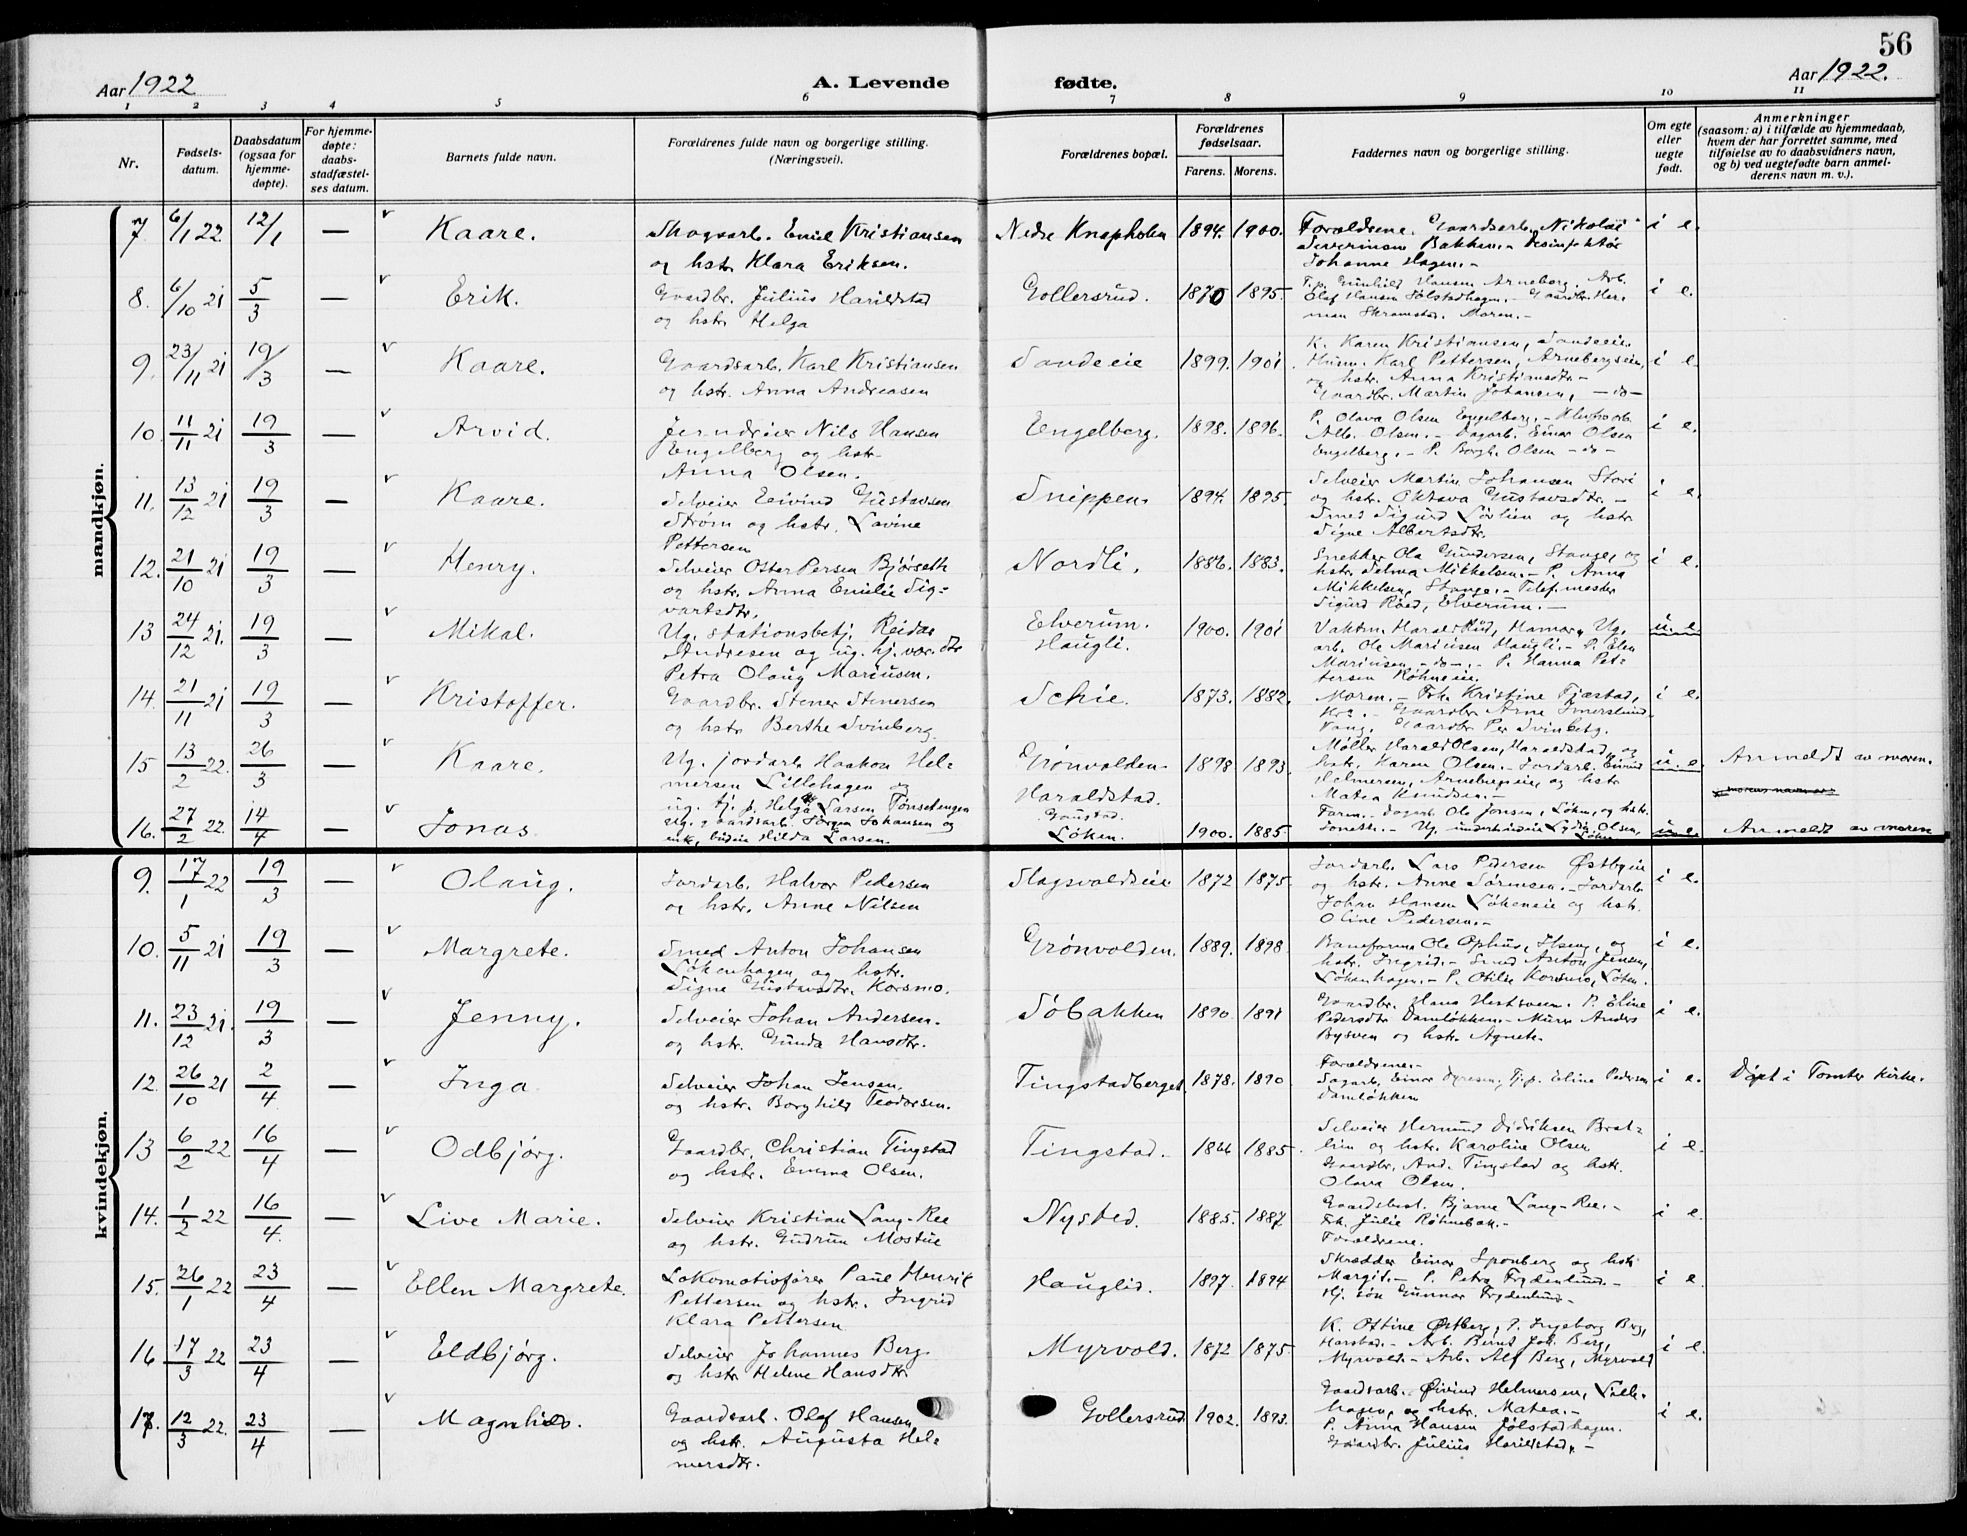 56
Aar 1922
A. Levende fødte.
Aar 1922.
1 2 3 4 5 6 7 8 9 10 11
Nr.
Fødsels-
datum.
Daabsdatum
(ogsaa for
hjemme-
døpte).
For hjemme-
døpte:
daabs-
stadfæstel-
ses datum.
Barnets fulde navn.
Forældrenes fulde navn og borgerlige stilling.
(Næringsvei).
Forældrenes bopæl.
Forældrenes
fødselsaar.
Farens. Morens.
Faddernes navn og borgerlige stilling.
Om egte
eller
uegte
født.
Anmerkninger
(saasom: a) i tilfælde av hjemmedaab,
hvem der har forrettet samme, med
tilføielse av to daabsvidners navn,
og b) ved uegtefødte barn anmel-
derens navn m. v.).
mandkjøn.
7 6/1 22 12/1 — Kaare.
Skogsarb. Emil Kristiansen
og hstr. Klara Eriksen.
Nedre Knapholen 1894. 1900.
Forældrene. Gaardsarb. Nikolai
Severinsen Bakken. - Desinfektør
Johanne Hagen. -
i e.
8. 6/10 21 5/3 — Erik.
Gaardbr. Julius Harildstad
og hstr. Helga
Gollersrud. 1870 1895.
T.p. Gunhild Hansen Arneberg. Arb.
Olaf Hansen Jølstadhagen. - Gaardbr. Her-
man Skramstad. Moren. -
i e.
9. 23/11 21 19/3 — Kaare.
Gaardsarb. Karl Kristiansen
og hstr. Anna Andreasen
Sandeeie 1899. 1901.
K. Karen Kristiansen, Sandeeie.
Husm. Karl Pettersen, Arnebergseie,
og hstr. Anna Kristiansdtr. -
Gaardbr. Martin Johansen, — do —
i e.
10. 11/11 21 19/3 — Arvid.
Jerndreier Nils Hansen
Engelberg og hstr.
Anna Olsen.
Engelberg. 1898. 1896.
P. Olava Olsen Engelberg. -
Alb. Olsen. - Dagarb. Einar Olsen
Engelberg. - P. Borgh. Olsen — do —
i e.
11. 13/12 21 19/3 — Kaare.
Selveier Eivind Gustavsen
Strøm og hstr. Lovine
Pettersen
Snippen 1894. 1895.
Selveier Martin Johansen Stori
og hstr. Oktava Gustavsdtr. -
Smed Sigurd Løvlien og hstr.
Signe Albertsdtr.
i e.
12. 21/10 21 19/3 — Henry.
Selveier Oster Persen Bjørseth
og hstr. Anna Emilie Sig-
vartsdtr.
Nordli. 1886. 1883.
Snekker Ola Gundersen, Stange, og
hstr. Selma Mikkelsen. - P. Anna
Mikkelsen, Stange. - Telef.mester
Sigurd Røed, Elverum. —
i e.
13 24/12 21. 19/3 — Mikal.
Ug. stationsbetj. Reidar
Andresen og ug. hj. vær. dtr
Petra Olaug Mariusen.
Elverum.
Haugli. 1900. 1901
Vaktm. Harald Rud, Hamar, Ug.
arb. Ole Mariusen Haugli. - P. Elen
Mariusen — do —. P. Hanna Pet-
tersen Røhneeie.
u. e.
14. 21/11 21 19/3 — Kristoffer.
Gaardbr. Stener Stenersen
og hstr. Berthe Svinberg.
Schie. 1873. 1882.
Moren. - Frk. Kristine Fjæstad,
Kra. - Gaardbr. Arne Imerslund
Vang. Gaardbr. Per Svinberg.
i e.
15 13/2 22. 26/3 — Kaare.
Ug. jordarb. Haakon Hel-
mersen Lillehagen og
ug. tj. p. Helga Larsen Tønsetengen
Grønvolden
Haraldstad. 1898 1893.
Møller Harald Olsen, Haraldstad, og
hstr. Karen Olsen. - Jordarb. Eivind
Helmersen, Arnebergeie og hstr
Matea Knudsen. -
u. e. Anmeldt av moren.
16. 27/2 22. 14/4 — Jonas.
ug. gaardsarb. Jørgen Johansen og
enk. budeie Hilda Larsen.
Gaustad.
Løken. 1900. 1885
Faren. - Dagarb. Ole Jonsen, Løken, og hstr.
Jonette. - Ug. underbudeie Lydia Olsen,
Løken
u. e. Anmeldt av moren
kvindekjøn.
9. 17/1 22 19/3 — Olaug.
Jordarb. Halvor Pedersen
og hstr. Anne Nilsen
Slagsvoldseie 1872 1875.
Jordarb. Lars Pedersen Østbyeie
og hstr. Anne Sørensen. - Jordarb.
Johan Hansen Løkeneie og hstr.
Oline Pedersen. -
i e.
10. 5/11 21 19/3 — Margrete.
Smed Anton Johansen
Løkenhagen og hstr.
Signe Gustavsdtr. Korsmo.
Grønvolden. 1889. 1898.
Baneform. Ole Ophus, Ilseng, og
hstr. Ingrid. - Smed Anton Jensen,
Løkenhagen. - P. Otilie Korsmo, Løten.
i e.
11. 23/12 21. 19/3 — Jenny.
Selveier Johan Andersen.
og hstr. Gunda Hansdtr.
Søbakken 1890. 1891
Gaardbr. Hans Hestsveen. P. Eline
Pedersdtr Damløkken. - Murer Anders
Bysveen og hstr. Agnete.
i e.
12. 26/10 21 2/4. — Inga.
Selveier Johan Jensen.
og hstr. Borghild Teodorsen.
Tingstadberget. 1878. 1890.
Forældrene. -
Sagarb. Einar Dyresen, Tj.p. Eline Pedersen
Damløkken
i e. Døpt i Tomter kirke.
13 6/2 22 16/4 — Odbjørg.
Gaardbr. Christian Tingstad
og hstr. Emma Olsen.
Tingstad. 1844 1885.
Selveier Hermund Didriksen Brat-
lien og hstr. Karoline Olsen
Gaardbr. And. Tingstad og hstr.
Olava Olsen.
i e.
14. 1/2 22 16/4. — Live Marie.
Selveier Kristian Lang-Ree
og hstr. Gudrun Mostue
Nysted. 1885. 1887.
Gaardsbest. Bjarne Lang-Ree. -
Frk. Julie Røhnebak. -
Forældrene.
i e.
15. 26/1 22 23/4 — Ellen Margrete.
Lokomotivfører Paul Henrik
Pettersen og hstr. Ingrid
Klara Pettersen
Hauglid. 1897. 1894
Skrædder Einar Sponberg og hstr
Margit. - P. Petra Frydenlund. -
Hj. søn Gunnar Frydenlund -
i e.
16 17/3 22 23/4 — Eldbjørg.
Selveier Johannes Berg
og hstr Helene Hansdtr
Myrvold. 1872 1875.
K. Ottine Østberg, P. Ingeborg Berg,
Harstad. - Arb. Bernt Joh. Berg,
Myrvold. - Arb. Alf Berg, Myrvold
i e.
17. 12/3 22. 23/4 — Magnhild.
Gaardsarb. Olaf Hansen
og hstr. Augusta Hel-
mersdtr.
Gollersrud 1902. 1893.
Gaardsarb. Øivind Helmersen, Lille-
hagen, og hstr. Matea. -
P. Anna Hansen Jølstadhagen.
Gaardbr. Julius Harildstad. -
i e.